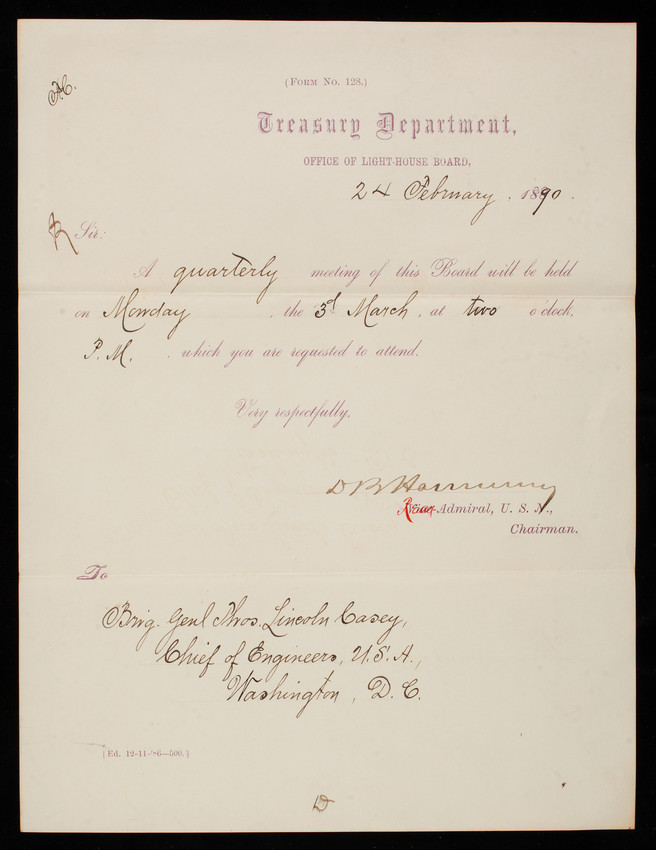 AC.
(Form No. 128.)
Treasury Department,
OFFICE OF LIGHT-HOUSE BOARD,
24 February, 1890.
Sir:
A quarterly meeting of this Board will be held
on Monday, the 3d March, at two o'clock,
P. M., which you are requested to attend.
Very respectfully,
D B Harmony
Rear-Admiral, U. S. N.,
Chairman.
To
Brig. Genl Thos. Lincoln Casey,
Chief of Engineers, U.S.A.,
Washington, D. C.
(Ed. 12-11-'86—500.)